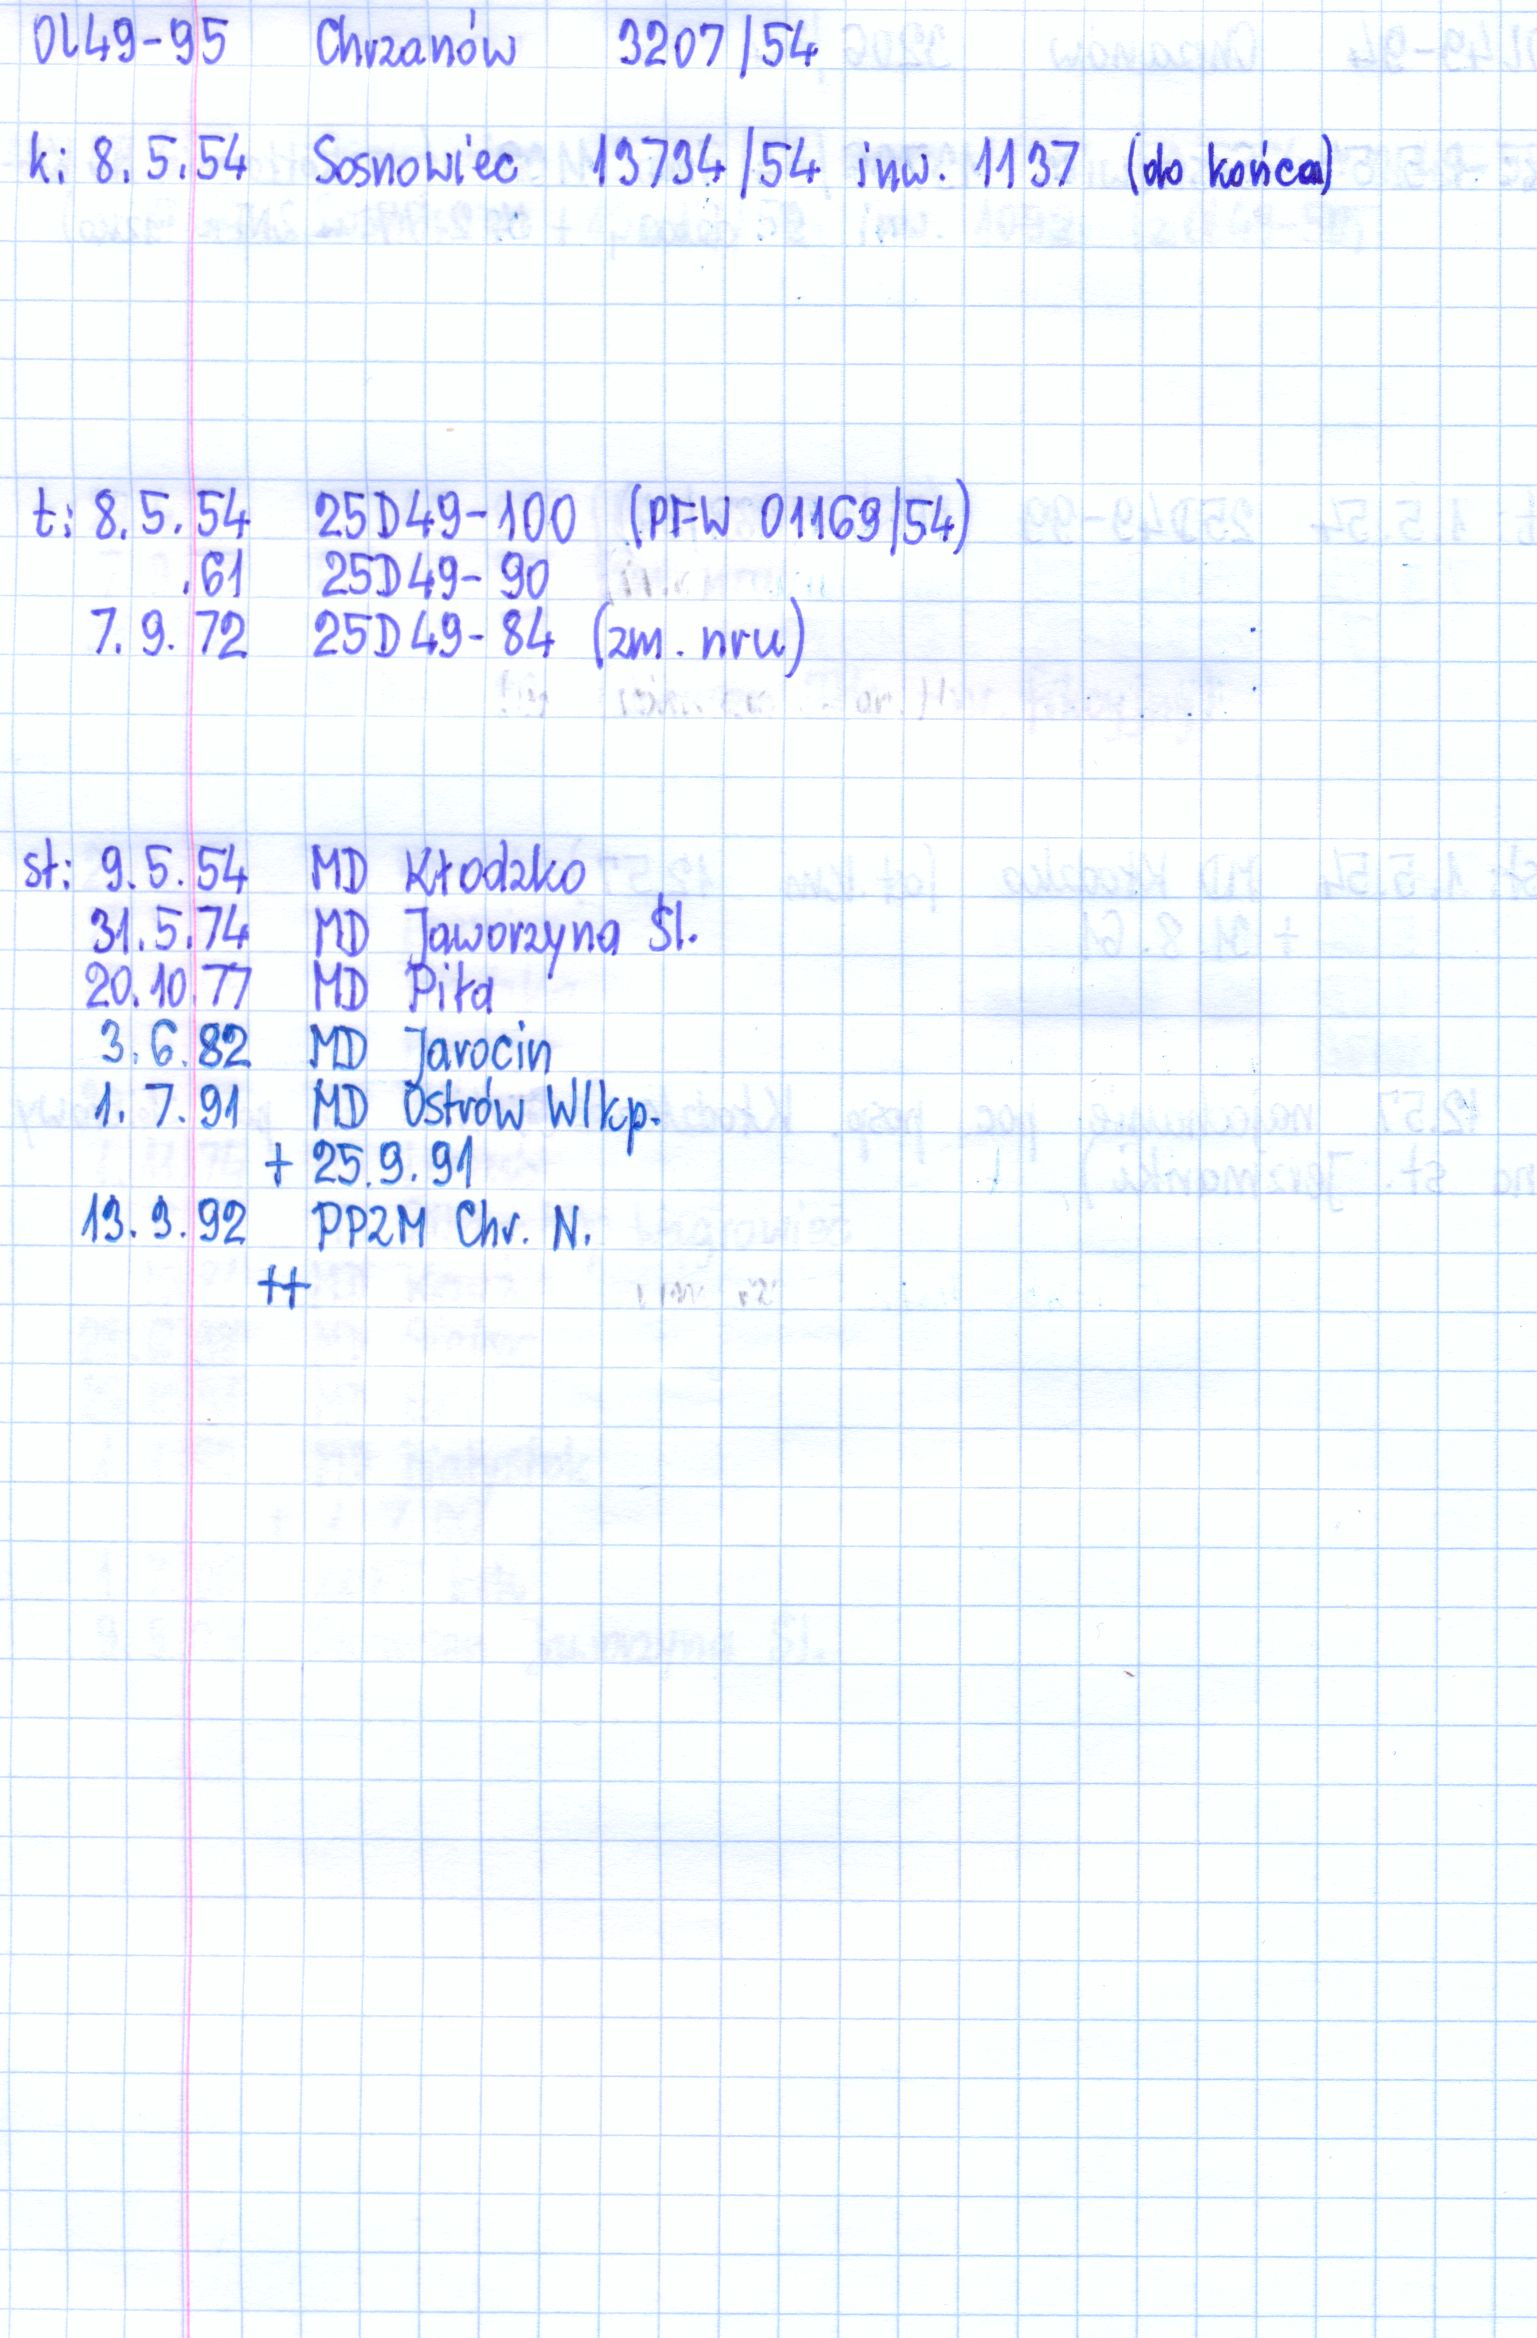 Ol49-95 Chrzanów 3207/54
k: 8.5.54 Sosnowiec 13734/54 inw. 1137 (do końca)
t: 8.5.54 25D49-100 (PFW 01169/54)
.61 25D49-90
7.9.72 25D49-84 (zm. nru)
st: 9.5.54 MD Kłodzko
31.5.74 MD Jaworzyna Śl.
20.10.77 MD Piła
3.6.82 MD Jarocin
1.7.91 MD Ostrów Wlkp.
+ 25.9.91
13.3.92 PPZM Chr. N.
++